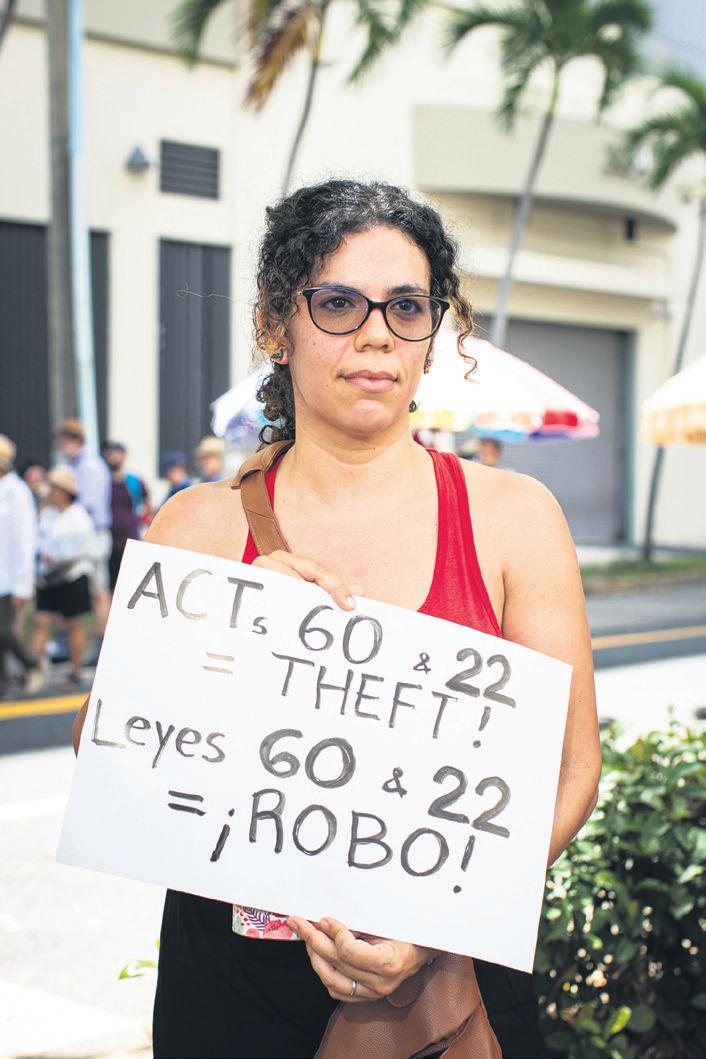 ACTs 60 & 22
= THEFT!
Leyes 60 & 22
= ¡ROBO!